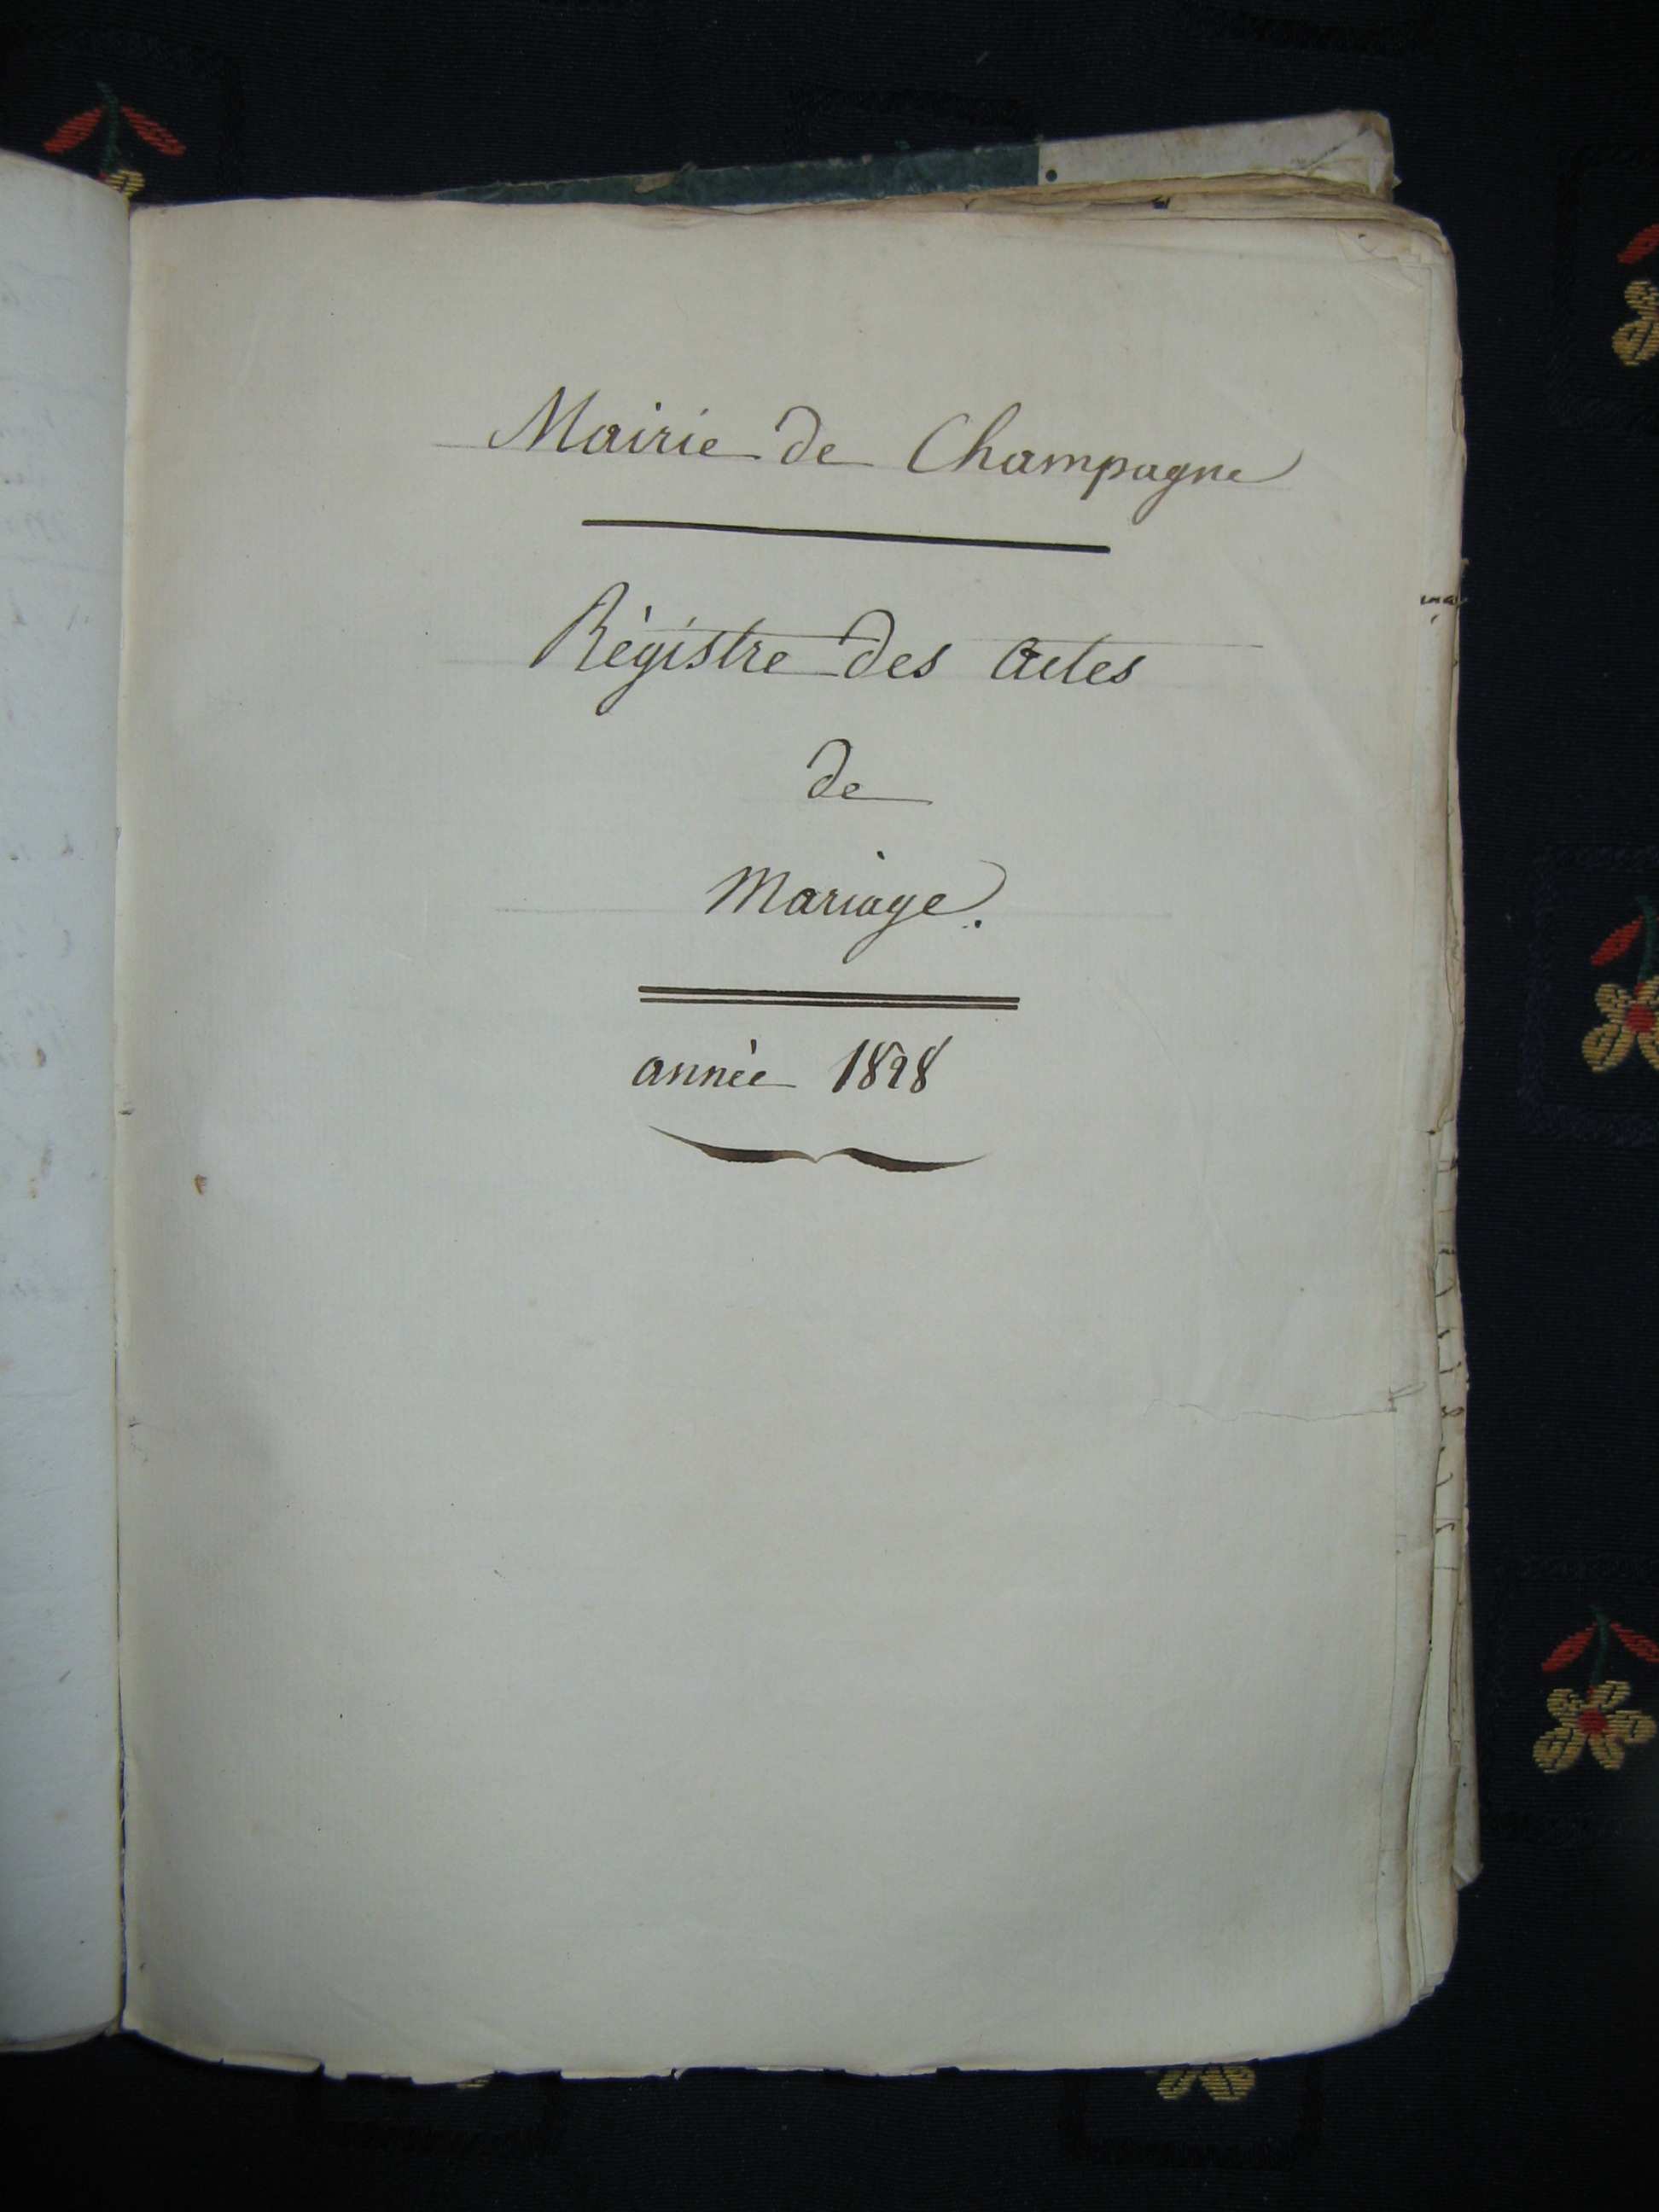 Mairie de Champagne
Règistre des Actes
de
Mariage.
année 1828